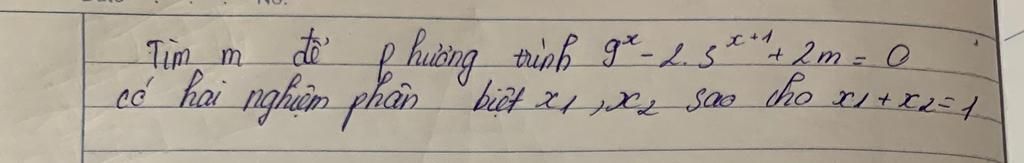 Tìm m để phương trình 9^x - 2.3^{x+1} + 2m = 0
có hai nghiệm phân biệt x1, x2 sao cho x1 + x2 = 1